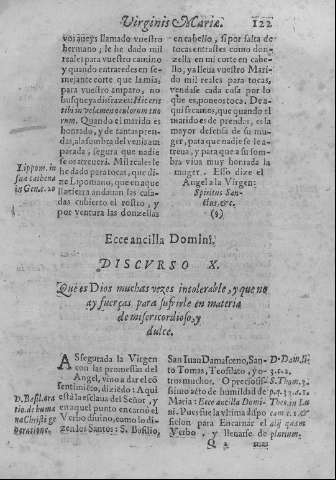 Virginis Mariæ. 122
vos aueys llamado vuestro
hermano; le he dado mil
reales para vuestro camino
y quando entraredes en se-
mejante corte que la mia,
para vuestro amparo, no
busqueys disfraces: Hic erit
tibi in velamen oculorum tuo
rum. Quando el marido es
honrado, y de tantas pren-
das, a la sombra del venis am
parada, segura que nadie
se os atreuerà. Mil reales le
he dado para tocas, que di-
ze Lipomano, que en aque
lla tierra andauan las casa-
das cubierto el rostro, y
por ventura las donzellas
Lippom. in
sua cathena
in Gen. c. 20
en cabello, si por falta de
tocas entrastes como don-
zella en mi corte en cabe-
llo, ya lleua vuestro Mari-
do mil reales para tocas,
vendase cada cosa por lo
que es poneos toca. De a-
qui se causa, que quando el
marido es de prendas, es la
mayor defensa de su mu-
ger, para que nadie se le a-
treua, y para que a su som-
bra viua muy honrada la
muger. Esso dize el
Angel a la Virgen:
Spiritus San-
ctus, &c.
(§)
Ecce ancilla Domini.
DISCVRSO X.
Que es Dios muchas vezes intolerable, y que no
ay fuerças para sufrirle en materia
de misericordioso, y
dulce.
ASegurada la Virgen
con las promessas del
Angel, vino a dar el con
sentimiẽto, diziẽdo: Aqui
està la esclaua del Señor, y
en aquel punto encarnò el
Verbo diuino, como lo di-
zen los Santos: S. Basilio,
D. Basil. ora
tio. de huma
na Christi ge
neratione.
San Iuan Damasceno, San-
to Tomas, Teofilato, y o-
tros muchos. O preciosis-
simo acto de humildad de
Maria: Ecce ancilla Domi-
ni. Pues fue la vltima dispo
sicion para Encarnar el
Verbo, y llenarse de
D. Dam. li.
3. c. 2.
S. Thom. 3.
p. q. 33. a. 3.
Theo. in Lu
cam c. 1. &
alij quam
plurimi.
Q 2